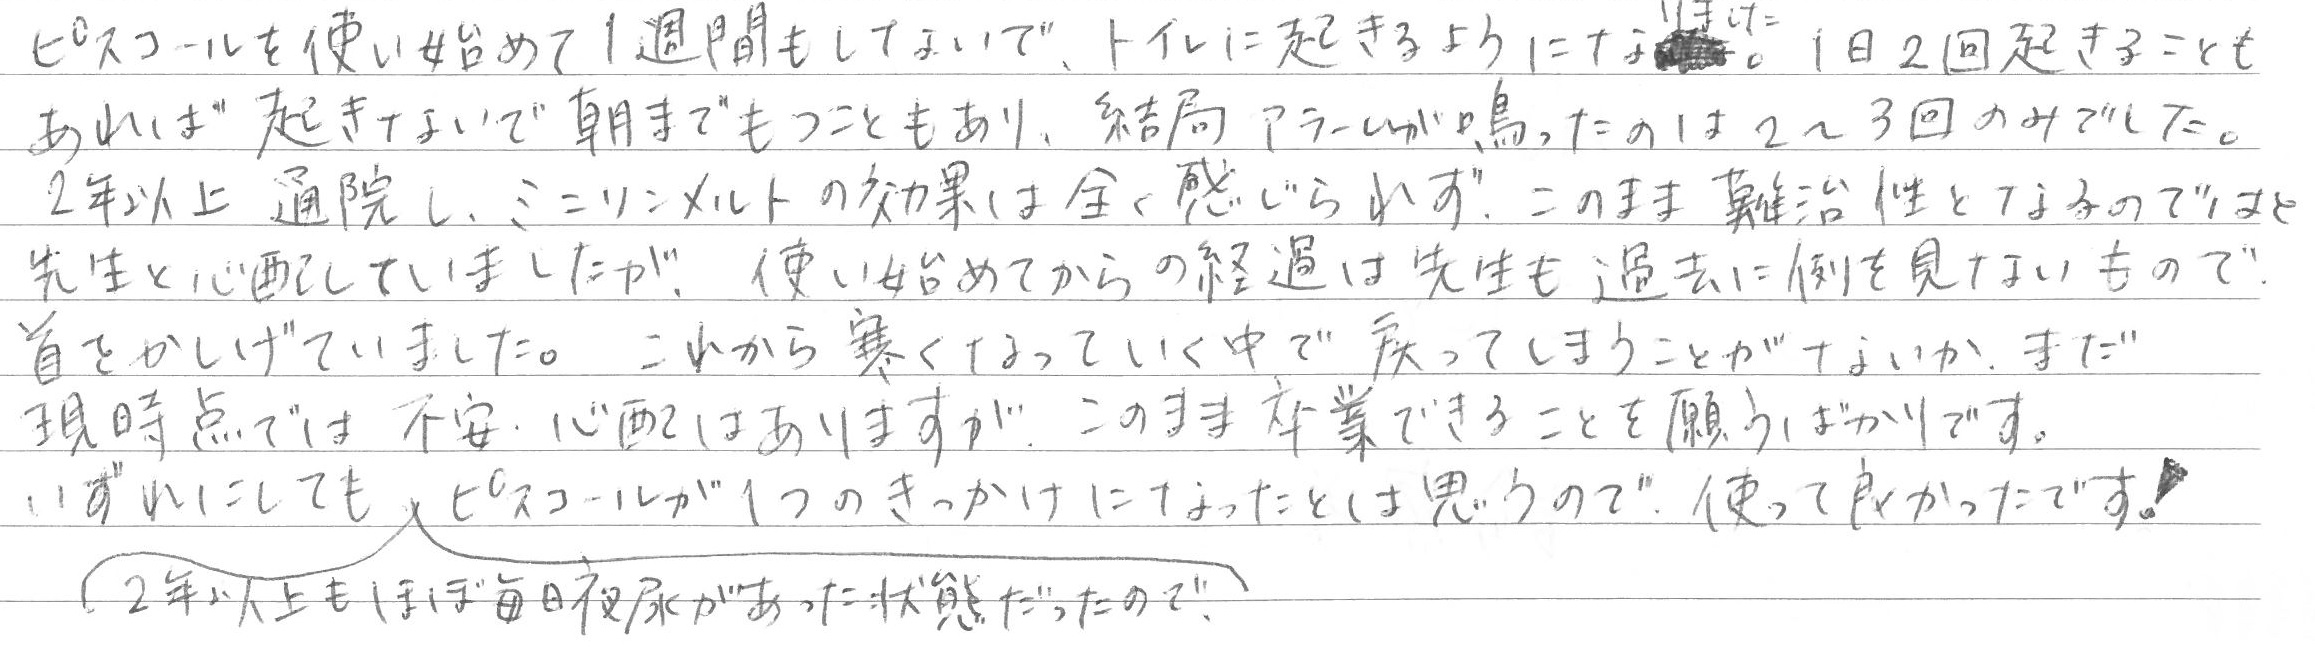 ピスコールを使い始めて1週間もしないで、トイレに起きるようになりました。1日2回起きることも
あれば起きないで朝までもつこともあり、結局アラームが鳴ったのは2~3回のみでした。
2年以上通院し、ミニリンメルトの効果は全く感じられず、このまま難治性となるのではと
先生と心配していましたが、使い始めてからの経過は先生も過去に例を見ないもので、
首をかしげていました。これから寒くなっていく中で戻ってしまうことがないか、まだ
現時点では不安・心配はありますが、このまま卒業できることを願うばかりです。
いずれにしても ピスコールが1つのきっかけになったとは思うので、使って良かったです!
2年以上もほぼ毎日夜尿があった状態だったので、